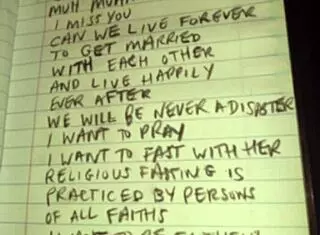 I MISS YOU
CAN WE LIVE FOREVER
TO GET MARRIED
WITH EACH OTHER
AND LIVE HAPPILY
EVER AFTER
WE WILL BE NEVER A DISASTER
I WANT TO PRAY
I WANT TO FAST WITH HER
RELIGIOUS FASTING IS
PRACTICED BY PERSONS
OF ALL FAITHS